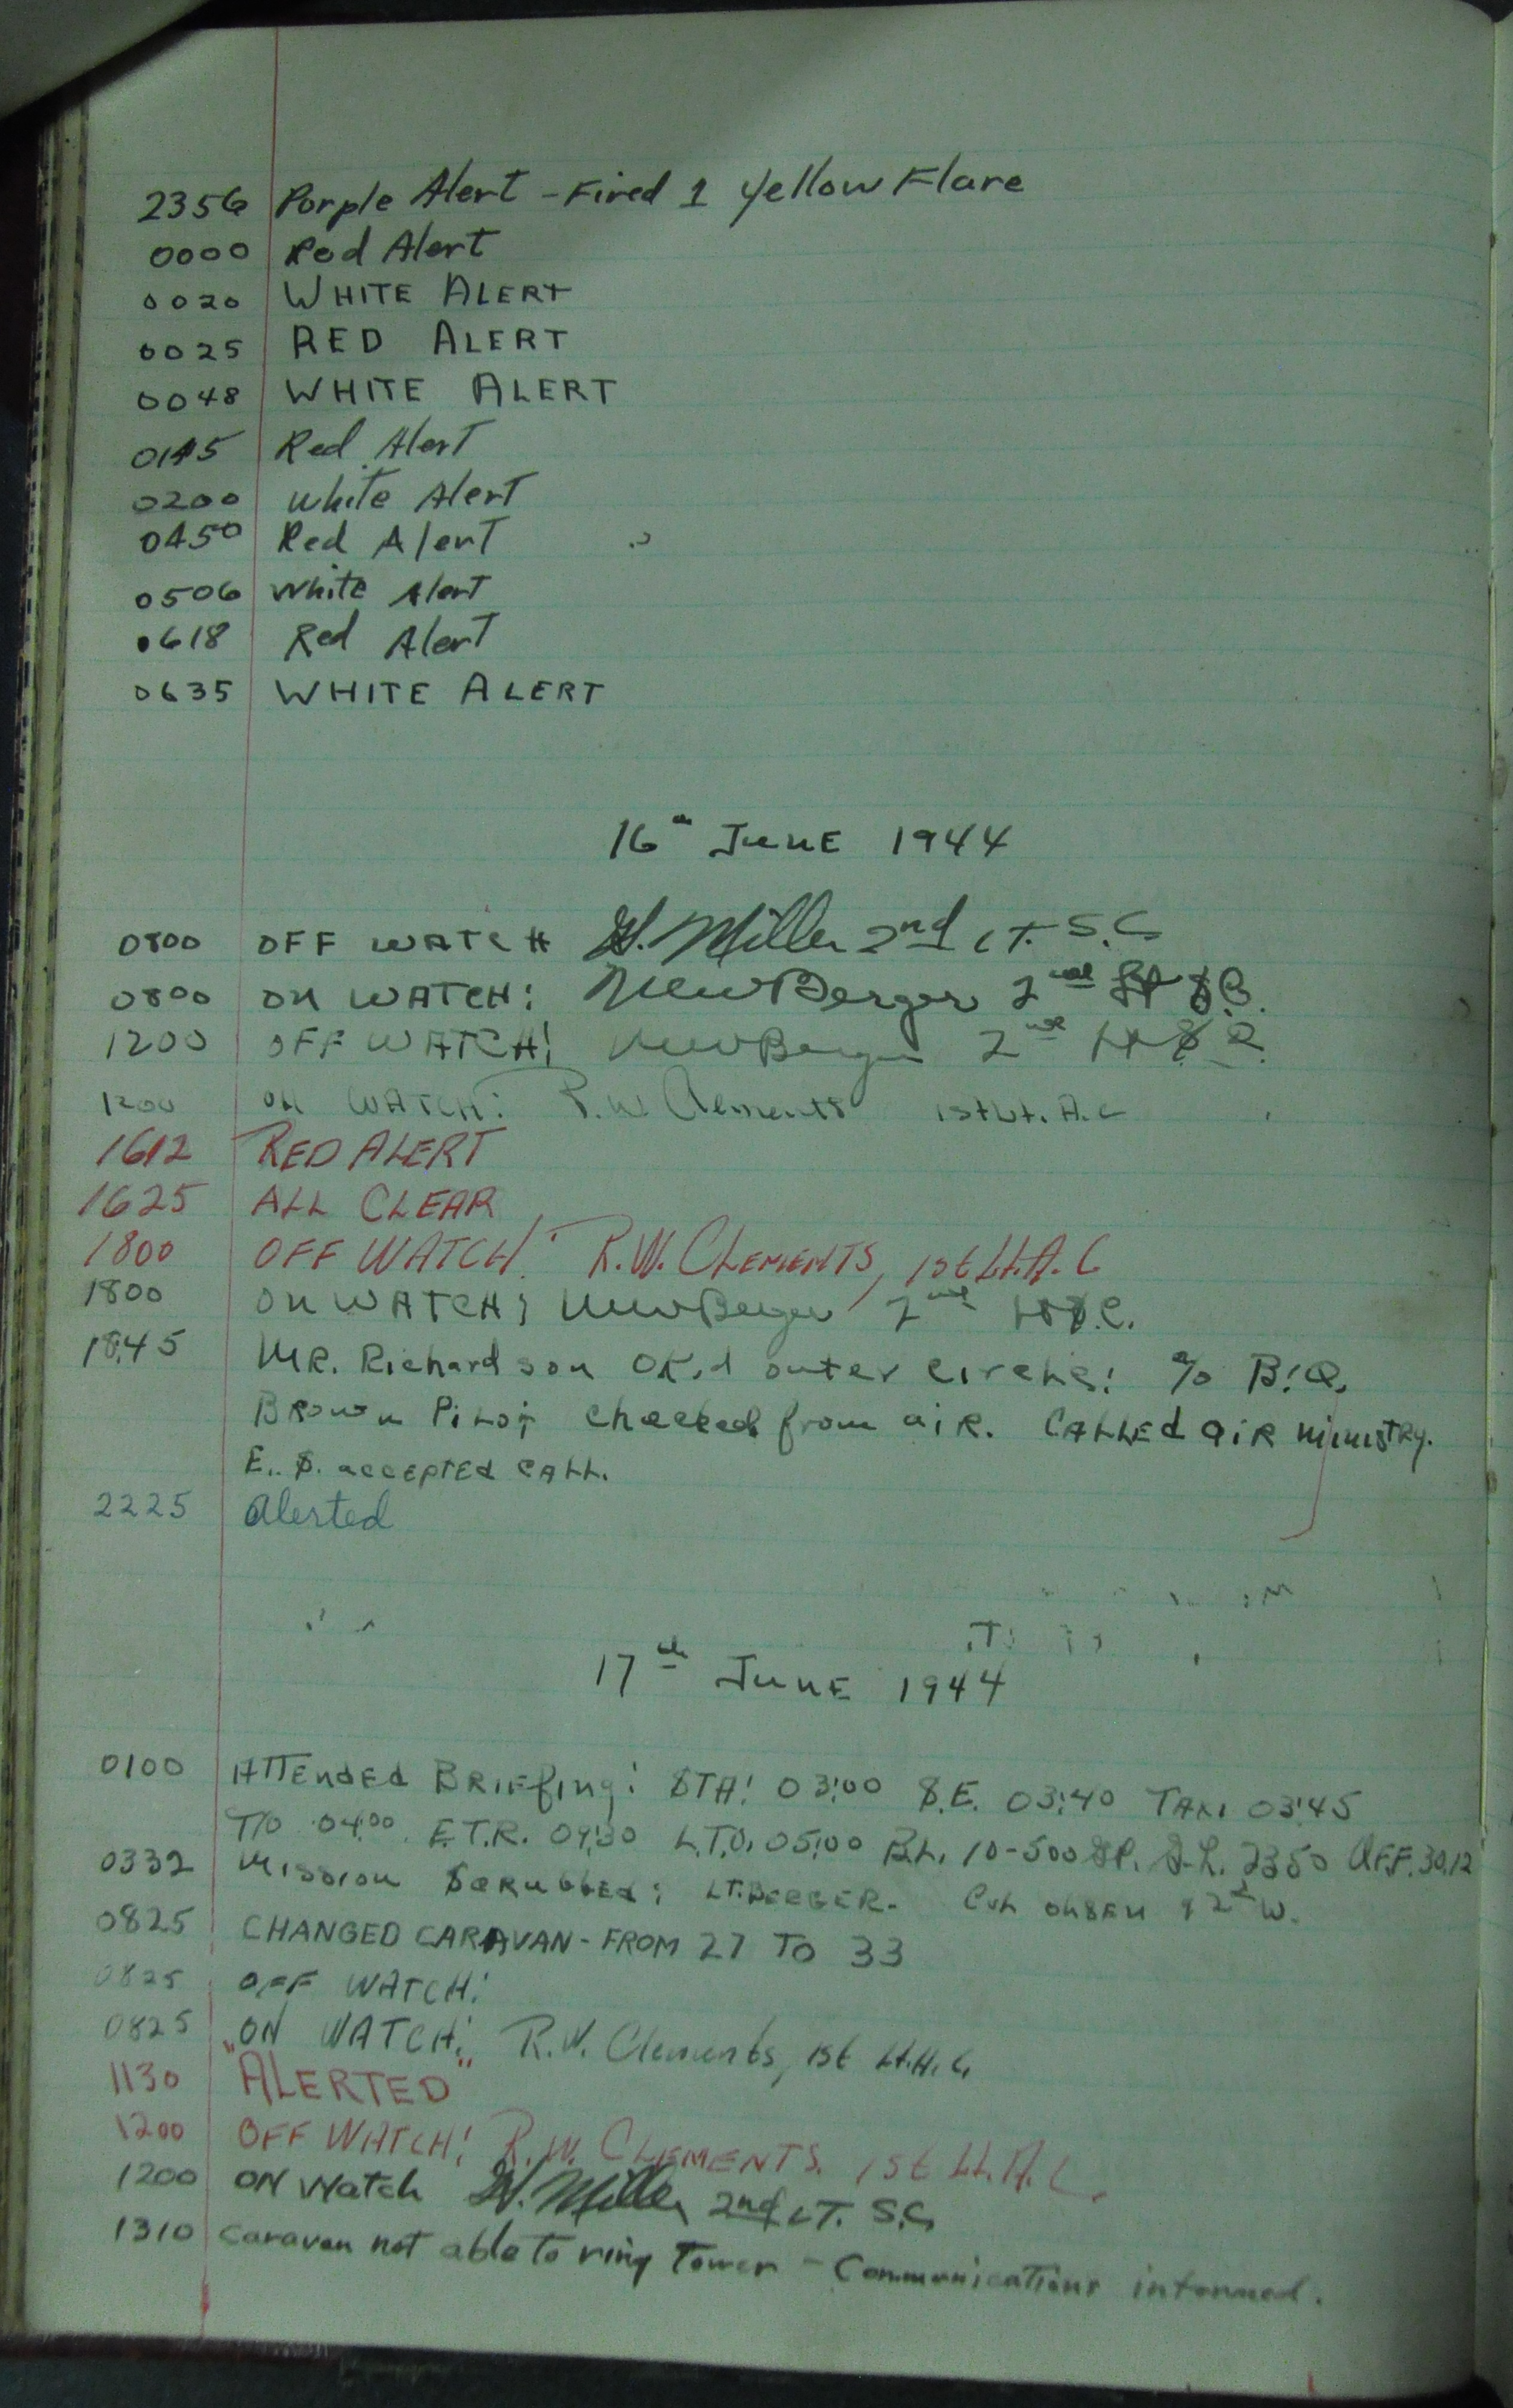 2356 Porple Alert - Fired 1 Yellow Flare
0000 Red Alert
0020 WHITE ALERT
0025 RED ALERT
0048 WHITE ALERT
0145 Red Alert
0200 White Alert
0450 Red Alert
0506 White Alert
0618 Red Alert
0635 WHITE ALERT
16th JUNE 1944
0800 OFF WATCH H. Miller 2nd LT. S.C.
0800 ON WATCH: Berger 2nd Lt
1200 OFF WATCH: Berger 2nd Lt
1200 ON WATCH: R.W. Clements 1st Lt. A.C
1612 RED ALERT
1625 ALL CLEAR
1800 OFF WATCH: R.W. CLEMENTS, 1st Lt. A.C
1800 ON WATCH: Berger 2nd Lt
1845 MR. Richardson OK,d outer circle:
Brown Pilot checked from air. CALLED AIR MINISTRY.
accepted CALL.
2225 Alerted
17th JUNE 1944
0100 ATTENDED BRIEFING: STA: 03:00 S.E. 03:40 TAXI 03:45
T/O 04:00 E.T.R. 09:30 L.T.O. 05:00 B.L. 10-500 2350 OFF. 3012
0332 Mission Scrubbed: LT. BERGER.
0825 CHANGED CARAVAN - FROM 27 TO 33
0825 OFF WATCH:
0825 ON WATCH: R.W. Clements, 1st Lt. A.C.
1130 "ALERTED"
1200 OFF WATCH: R.W. CLEMENTS. 1st Lt. A.C.
1200 ON Watch H. Miller 2nd LT. S.C.
1310 Caravan not able to ring Tower - Communications informed.